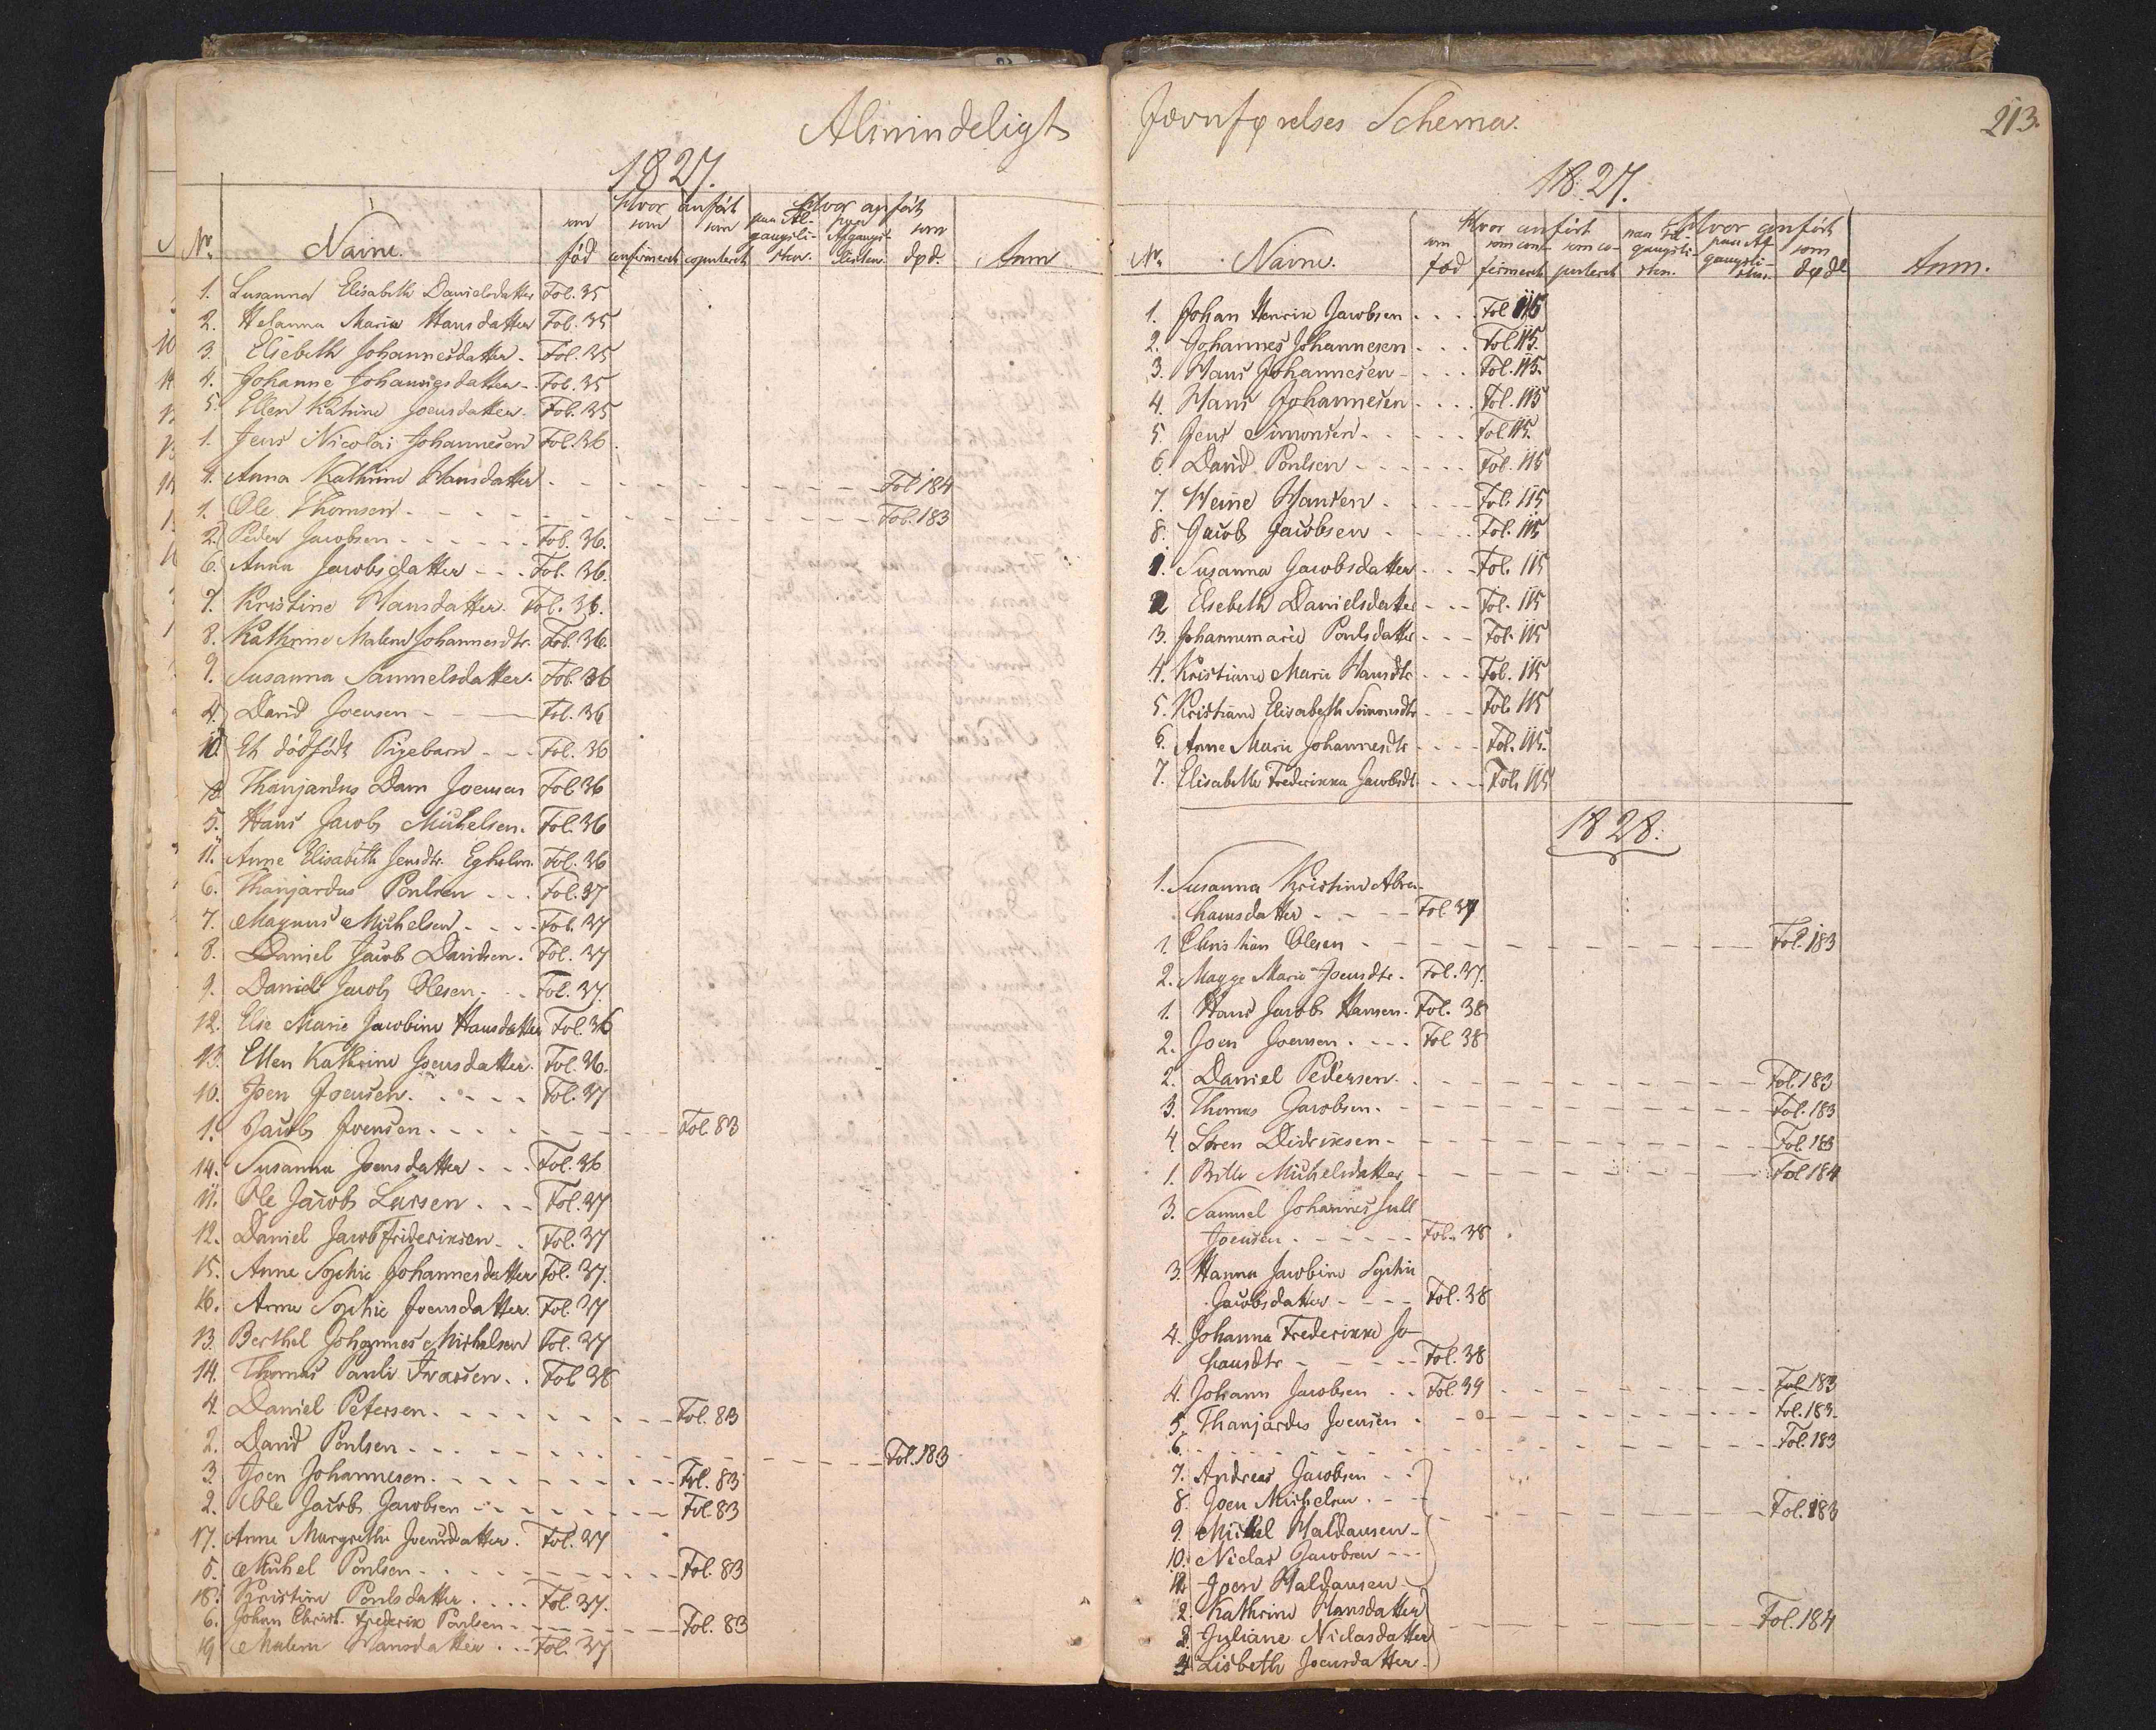 Almindeligt
1827.
Hvor anført
Hvor anført
No. Navne. som fød som confirmeret som copuleret paa Tilgangsli-sten. paa Afgangs-listen. som død. Anm
1. Susanna Elisabeth Danielsdatter Fol. 35
2. Helanna Maria Hansdatter Fol. 35
3. Elsebeth Johannesdatter - Fol. 35
4. Johanne Johannesdatter - Fol. 35
5. Ellen Katrine Joensdatter. Fol. 35
1. Jens Nicolai Johannesen Fol. 36.
1. Anna Kathrine Hansdatter - - - Fol 184
1. Ole Thomsen - - - Fol. 183
2. Peder Jacobsen - - - Fol. 36.
6. Anna Jacobsdatter - - - Fol. 36.
7. Kristine Hansdatter. Fol. 36.
8. Kathrine Malene Johannesdtr. Fol. 36.
9. Susanna Samuelsdatter. Fol. 36
4. David Joensen - - - Fol. 36
10. Et dødfødt Pigebarn - - - Fol. 36
Thanjardus Dam Joensen Fol 36
5. Hans Jacob Michelsen. Fol. 36
11. Anne Elisabeth Jensdtr. Egholm. Fol. 36
6. Thanjardus Poulsen - - . Fol. 37
7. Magnus Michelsen - - - Fol. 37
8. Daniel Jacob Davidsen. Fol. 37
9. Daniel Jacob Olesen. - . Fol. 37.
12. Else Marie Jacobine Hansdatter Fol. 36
13. Ellen Kathrine Joensdatter. Fol. 36.
10. Joen Joensen. - - - Fol. 37
1. Jacob Joensen. - - - Fol. 83
14. Susanna Joensdatter - - . Fol. 36
11. Ole Jacob Larsen . . - Fol. 37
12. Daniel Jacob Frideriksen . . Fol. 37
15. Anne Sophie Johannesdatter Fol. 37.
16. Anne Sophie Joensdatter. Fol. 37
13. Berthel Johannes Michelsen Fol. 37
14. Thomas Pauli Ivarsen . . Fol. 38
4. Daniel Petersen. - - - Fol. 83
2. David Poulsen - - - Fol. 183
3. Joen Johannesen. - - - Fol. 83
2. Ole Jacob Jacobsen - - - Fol. 83
17. Anne Margrethe Joensdatter. Fol. 37
5. Michel Poulsen - - - Fol. 83
18. Kristine Poulsdatter - - - Fol. 37.
6. Johan Christ. Frederik Poulsen - - - Fol. 83
19 Malene Hansdatter - - - Fol. 37
Jævnførelses Schema.
213.
1827.
Hvor anført
Hvor anført
No. Navne. som fød som con-firmeret som co-puleret paa Til-gangsli-sten. paa Af-gangsli-sten. som død Anm.
1. Johan Henrik Jacobsen . . . Fol 115
2. Johannes Johannesen - . . Fol 115.
3. Hans Johannesen - . . . Fol. 115.
4. Hans Johannesen . . . Fol. 115
5. Jens Simonsen - . . . Fol. 115.
6. David Poulsen - - - Fol. 115
7. Heine Hansen - - - Fol. 115
8. Jacob Jacobsen - - - Fol. 115
1. Susanna Jacobsdatter - - - Fol. 115
2 Elsebeth Danielsdatter - - - Fol. 115
3. Johannemarie Poulsdatter - - - Fol. 115
4. Kristiane Marie Hansdtr - - - Fol. 115
5. Kristiane Elisabeth Simonsdtr - - - Fol. 115
6. Anne Marie Johannesdtr - - - Fol. 115.
7. Elisabeth Frederikka Jacobsdt. - - - Fol. 115
1828.
1. Susanna Kristine Abra-
hamsdatter - - - Fol. 37
1. Christian Olesen - - - Fol. 183
2. Magge Marie Joensdtr. - Fol. 37.
1. Hans Jacob Hansen. Fol. 38
2. Joen Joensen . - - . Fol 38
2. Daniel Pedersen. - - - Fol. 183
3. Thomas Jacobsen. - - - Fol. 183
4. Søren Didriksen - - - Fol. 183
1. Bille Michelsdatter - - - Fol 184
3. Samuel Johannes
Joensen - - - Fol. 38
3. Hanna Jacobine Sophie
Jacobsdatter - - - Fol. 38
4. Johanna Frederikke Jo-
hansdtr - - - Fol. 38
4. Johann Jacobsen . . Fol. 39 - - - Fol. 183
5. Thanjardus Joensen . - - - Fol. 183.
6. - - - Fol. 183
7. Andreas Jacobsen - -
8. Joen Michelsen . - -
9. Mickel Haldansen - - - - Fol. 183
10. Niclas Jacobsen - - -
Joen Haldansen -
2. Kathrine Hansdatter
3. Juliane Niclasdatter - - - Fol. 184
4. Lisbeth Joensdatter -